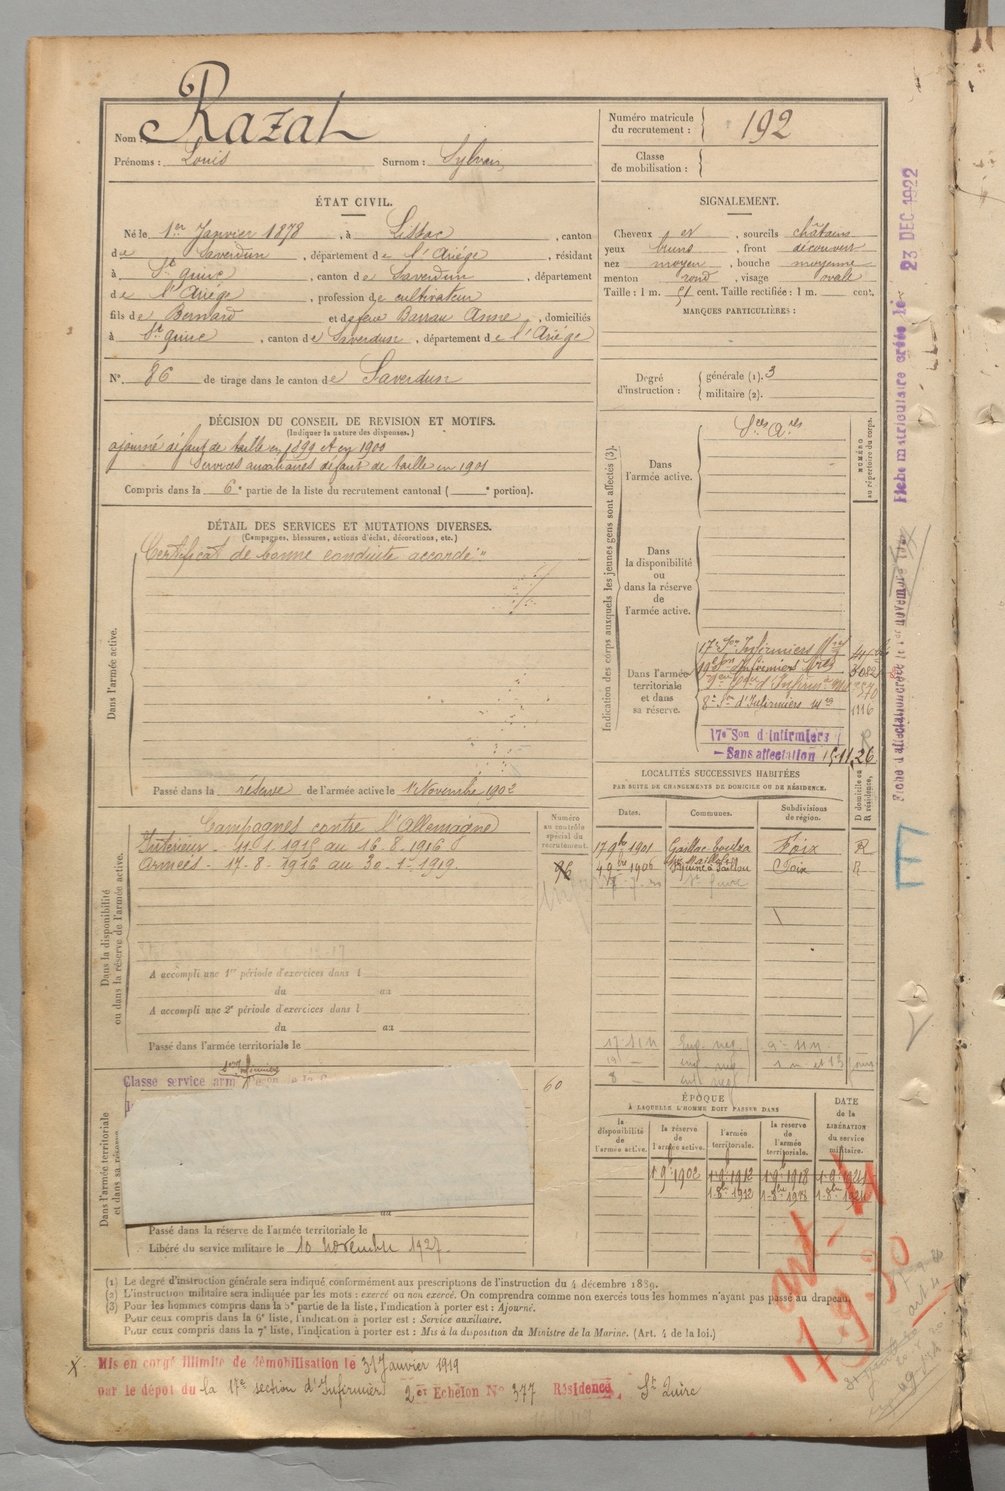 Nom : Razat
Prénoms : Louis Surnom : Sylvain
Numéro matricule du recrutement : 192
Classe de mobilisation :
ÉTAT CIVIL.
Né le 1er Janvier 1878, à Lissac, canton
de Saverdun, département de l'Ariége, résidant
à St Quirc, canton de Saverdun, département
de l'Ariége, profession de cultivateur
fils de Bernard et de feue Barrau Anne, domiciliés
à St Quirc, canton de Saverdun, département de l'Ariége
N°. 86 de tirage dans le canton de Saverdun
SIGNALEMENT.
Cheveux et, sourcils châtains
yeux bruns, front découvert
nez moyen, bouche moyenne
menton rond, visage ovale
Taille : 1 m. 51 cent. Taille rectifiée : 1 m. cent.
MARQUES PARTICULIÈRES :
Degré d'instruction : générale (1). 3
militaire (2).
DÉCISION DU CONSEIL DE REVISION ET MOTIFS.
(Indiquer la nature des dispenses.)
ajourné défaut de taille en 1899 et en 1900
Services auxiliaires défaut de taille en 1901
Compris dans la 6e partie de la liste du recrutement cantonal ( e portion).
DÉTAIL DES SERVICES ET MUTATIONS DIVERSES.
(Campagnes, blessures, actions d'éclat, décorations, etc.)
Dans l'armée active.
Certificat de bonne conduite accordé
Passé dans la réserve de l'armée active le 1 Novembre 1902
Indication des corps auxquels les jeunes gens sont affectés (3).
NUMÉRO au répertoire du corps.
Dans l'armée active.
Dans la disponibilité ou dans la réserve de l'armée active.
Dans l'armée territoriale et dans sa réserve.
8e Son d'Infirmiers 1116
17e Son d'Infirmiers
Sans affectation 15.11.26
LOCALITÉS SUCCESSIVES HABITÉES
PAR SUITE DE CHANGEMENTS DE DOMICILE OU DE RÉSIDENCE.
Dates. Communes. Subdivisions de région. D domicile ou R résidence.
1901 Gaillac-Toulza Foix R
1906 Foix R
Dans la disponibilité ou dans la réserve de l'armée active.
Numéro au contrôle spécial du recrutement.
Campagnes contre l'Allemagne
Intérieur - 11.1.1915 au 16-8-1916
Armées - 17-8-1916 au 30-1-1919.
A accompli une 1re période d'exercices dans l
du au
A accompli une 2e période d'exercices dans l
du au
Passé dans l'armée territoriale le
Dans l'armée territoriale et dans sa réserve
Classe service arm
60
Passé dans la réserve de l'armée territoriale le
Libéré du service militaire le 10 novembre 1927.
ÉPOQUE
À LAQUELLE L'HOMME DOIT PASSER DANS
DATE de la LIBÉRATION du service militaire.
la disponibilité de l'armée active. la réserve de l'armée active. l'armée territoriale. la réserve de l'armée territoriale.
(1) Le degré d'instruction générale sera indiqué conformément aux prescriptions de l'instruction du 4 décembre 1889.
(2) L'instruction militaire sera indiquée par les mots : exercé ou non exercé. On comprendra comme non exercés tous les hommes n'ayant pas passé au drapeau.
(3) Pour les hommes compris dans la 5e partie de la liste, l'indication à porter est : Ajourné.
Pour ceux compris dans la 6e liste, l'indication à porter est : Service auxiliaire.
Pour ceux compris dans la 7e liste, l'indication à porter est : Mis à la disposition du Ministre de la Marine. (Art. 4 de la loi.)
Mis en congé illimité de démobilisation le 31 Janvier 1919
par le dépôt du la 17e section d'Infirmiers 2er Echelon N° 377 Résidence, St Quirc
23 DEC 1922
Fiche matriculaire créée le
art-4
17.9.30